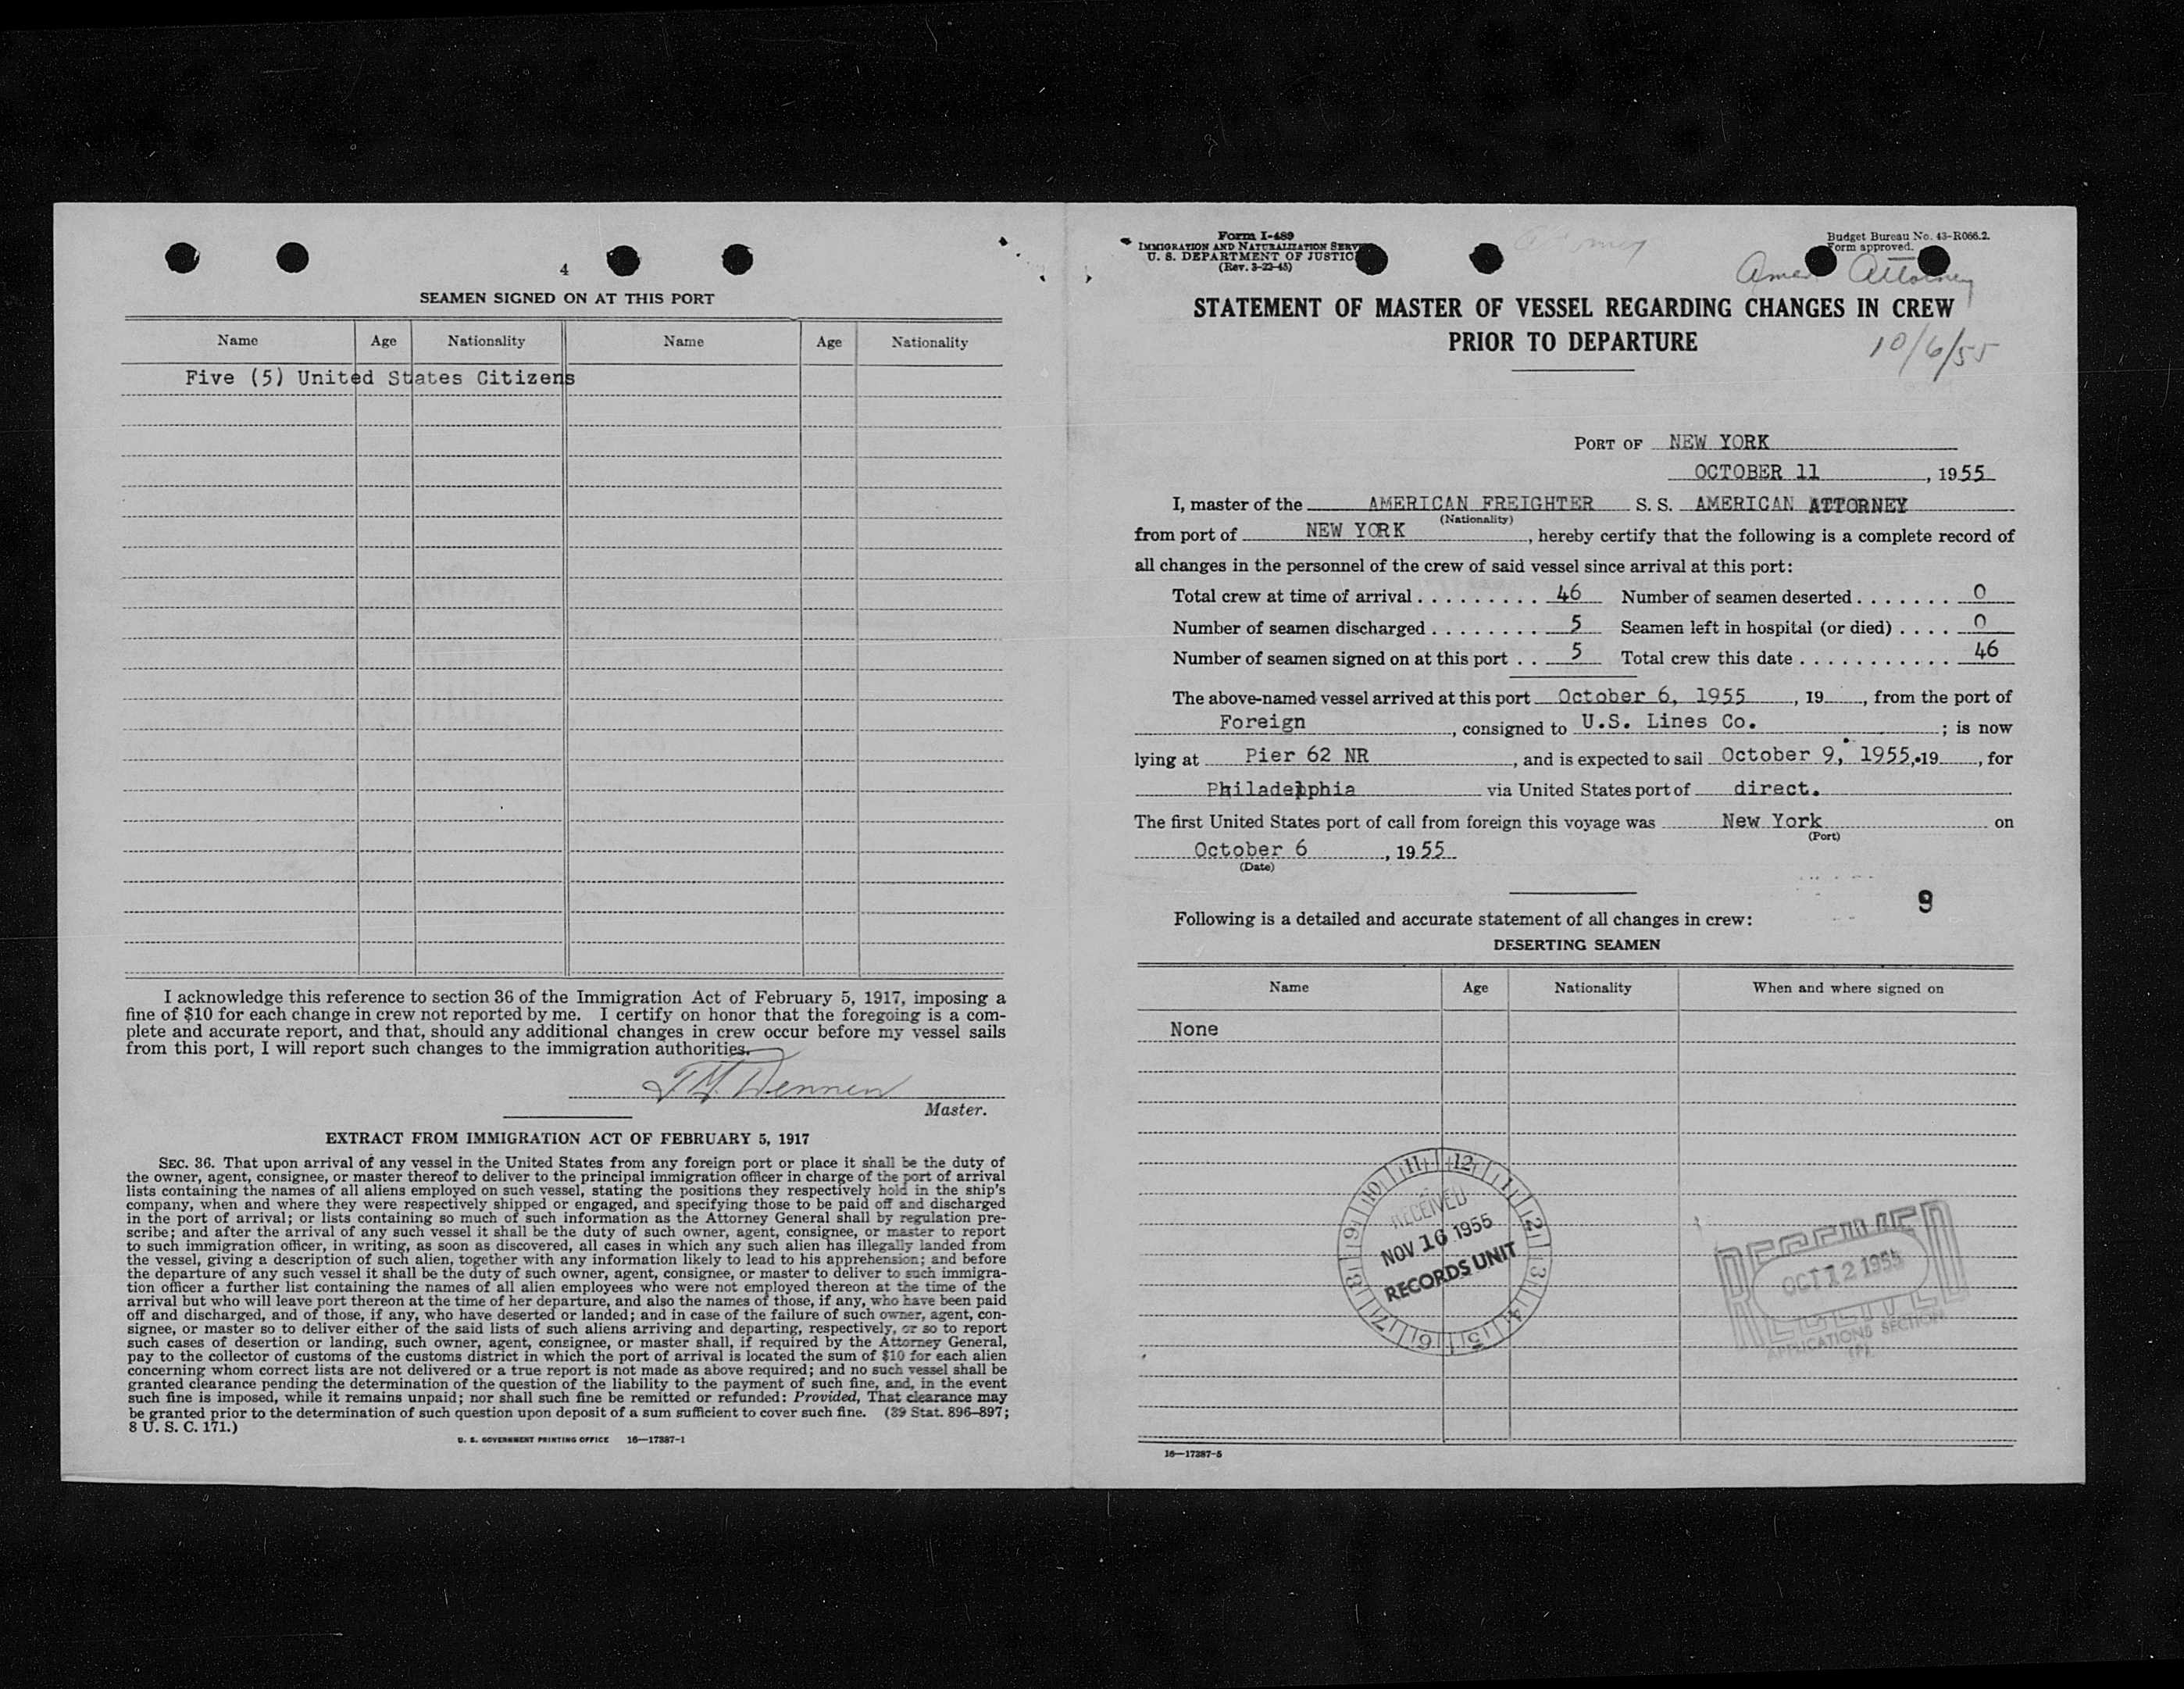 4
SEAMEN SIGNED ON AT THIS PORT
Name Age Nationality Name Age Nationality
Five (5) United States Citizens
I acknowledge this reference to section 36 of the Immigration Act of February 5, 1917, imposing a
fine of $10 for each change in crew not reported by me. I certify on honor that the foregoing is a com-
plete and accurate report, and that, should any additional changes in crew occur before my vessel sails
from this port, I will report such changes to the immigration authorities.
Master.
EXTRACT FROM IMMIGRATION ACT OF FEBRUARY 5, 1917
SEC. 36. That upon arrival of any vessel in the United States from any foreign port or place it shall be the duty of
the owner, agent, consignee, or master thereof to deliver to the principal immigration officer in charge of the port of arrival
lists containing the names of all aliens employed on such vessel, stating the positions they respectively hold in the ship's
company, when and where they were respectively shipped or engaged, and specifying those to be paid off and discharged
in the port of arrival; or lists containing so much of such information as the Attorney General shall by regulation pre-
scribe; and after the arrival of any such vessel it shall be the duty of such owner, agent, consignee, or master to report
to such immigration officer, in writing, as soon as discovered, all cases in which any such alien has illegally landed from
the vessel, giving a description of such alien, together with any information likely to lead to his apprehension; and before
the departure of any such vessel it shall be the duty of such owner, agent, consignee, or master to deliver to such immigra-
tion officer a further list containing the names of all alien employees who were not employed thereon at the time of the
arrival but who will leave port thereon at the time of her departure, and also the names of those, if any, who have been paid
off and discharged, and of those, if any, who have deserted or landed; and in case of the failure of such owner, agent, con-
signee, or master so to deliver either of the said lists of such aliens arriving and departing, respectively, or so to report
such cases of desertion or landing, such owner, agent, consignee, or master shall, if required by the Attorney General,
pay to the collector of customs of the customs district in which the port of arrival is located the sum of $10 for each alien
concerning whom correct lists are not delivered or a true report is not made as above required; and no such vessel shall be
granted clearance pending the determination of the question of the liability to the payment of such fine, and, in the event
such fine is imposed, while it remains unpaid; nor shall such fine be remitted or refunded: Provided, That clearance may
be granted prior to the determination of such question upon deposit of a sum sufficient to cover such fine. (39 Stat. 896-897;
8 U. S. C. 171.)
U. S. GOVERNMENT PRINTING OFFICE 16—17387-1
Form I-489
IMMIGRATION AND NATURALIZATION SERV
U. S. DEPARTMENT OF JUSTIC
(Rev. 3-22-45)
Budget Bureau No. 43-R066.2.
Form approved.
Amer Attorney
STATEMENT OF MASTER OF VESSEL REGARDING CHANGES IN CREW
PRIOR TO DEPARTURE
10/6/55
PORT OF NEW YORK
OCTOBER 11, 1955
I, master of the AMERICAN FREIGHTER S. S. AMERICAN ATTORNEY
(Nationality)
from port of NEW YORK, hereby certify that the following is a complete record of
all changes in the personnel of the crew of said vessel since arrival at this port:
Total crew at time of arrival . . . . . . . . . . 46 Number of seamen deserted . . . . . . . 0
Number of seamen discharged . . . . . . . . 5 Seamen left in hospital (or died) . . . . 0
Number of seamen signed on at this port . . 5 Total crew this date . . . . . . . . . . . 46
The above-named vessel arrived at this port October 6, 1955, 19 , from the port of
Foreign, consigned to U.S. Lines Co. ; is now
lying at Pier 62 NR, and is expected to sail October 9, 1955, 19 , for
Philadelphia via United States port of direct.
The first United States port of call from foreign this voyage was New York on
(Port)
October 6, 1955
(Date)
9
Following is a detailed and accurate statement of all changes in crew:
DESERTING SEAMEN
Name Age Nationality When and where signed on
None
11 12 1 2 3 4 5 6 7 8 9 10
RECEIVED
NOV 16 1955
RECORDS UNIT
RECEIVED
OCT 12 1955
APPLICATIONS SECTION
16—17387-5